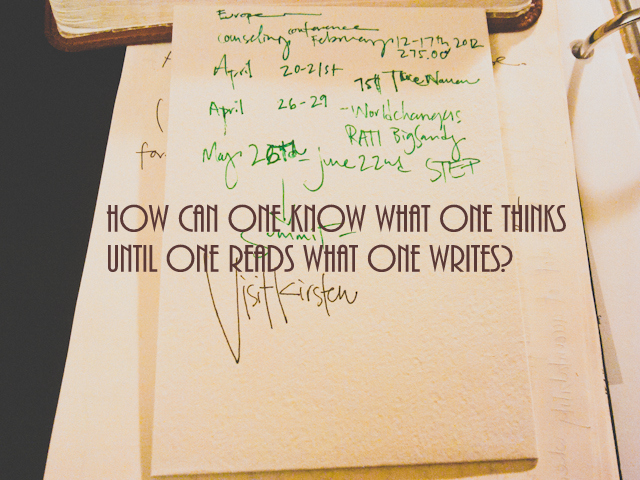 Europe
counseling conference February 12-17th 2012
275.00
April 20-21st
April 26-29 - Worldchangers
RATI BigSandy
May 2 June 22nd STEP
Summit -
HOW CAN ONE KNOW WHAT ONE THINKS
UNTIL ONE READS WHAT ONE WRITES?
Visit Kirsten